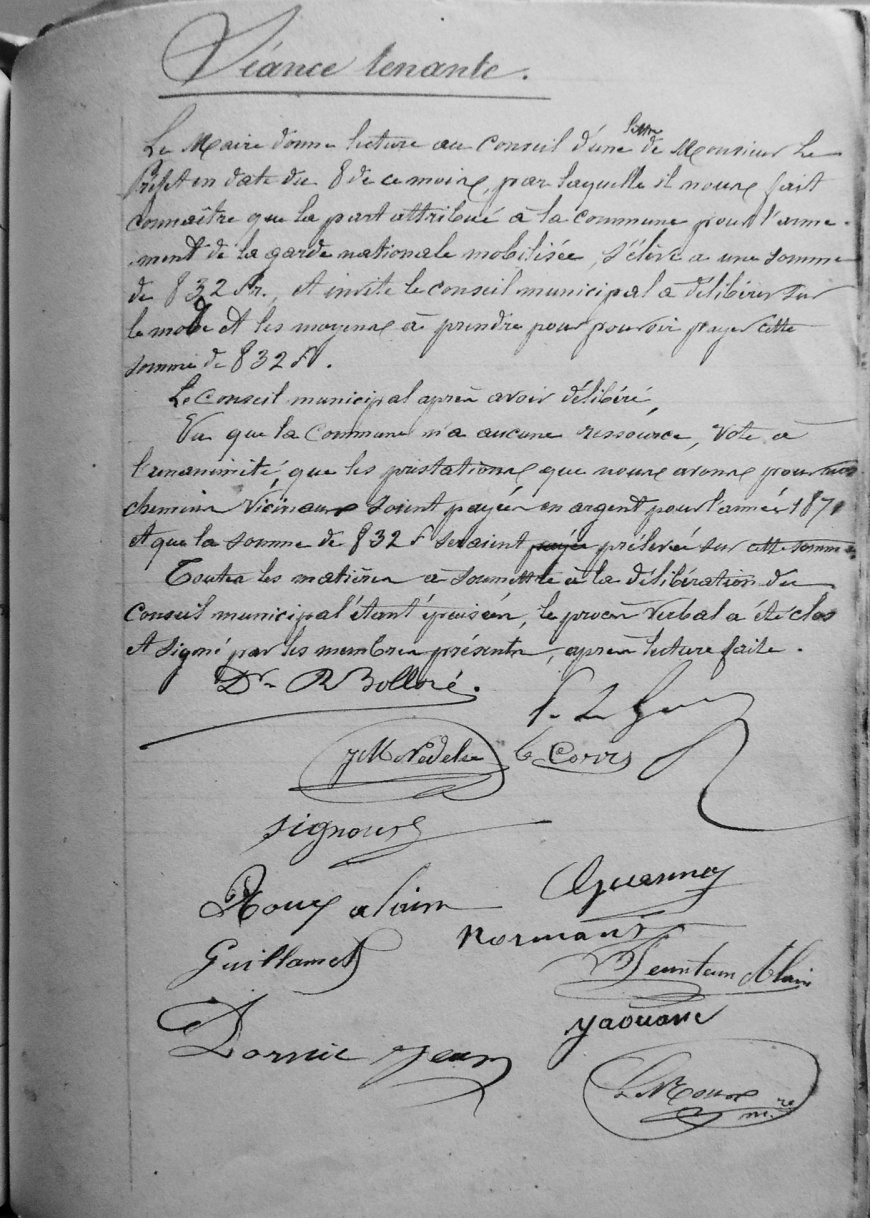 Séance tenante.
Le Maire donne lecture au Conseil d'une lettre de Monsieur Le
Préfet en date du 8 de ce mois, par laquelle il nous fait
connaître que la part attribué à la commune pour l'arme-
ment de la garde nationale mobilisée, s'élève a une somme
de 832 Fr., et invite le conseil municipal a délibérer sur
le mode et les moyens à prendre pour pouvoir payer cette
somme de 832 F.
Le Conseil municipal après avoir délibéré,
Vu que la Commune n'a aucune ressource, vote à
l'unanimité que les prestations que nous avons pour nos
chemins vicinaux soient payées en argent pour l'année 1871
et que la somme de 832 F seraient payée prélevée sur cette somme.
Toutes les matières à soumettre à la délibération du
Conseil municipal étant épuisées, le procès verbal a été clos
et signé par les membres présents, après lecture faite.
Dr R Bolloré.
JM Nedelec Le Corre
Signour
Roux alain
Guillamet Normant
Jeunteun Alain
Dornic Jean Yaouanc
Le Roux